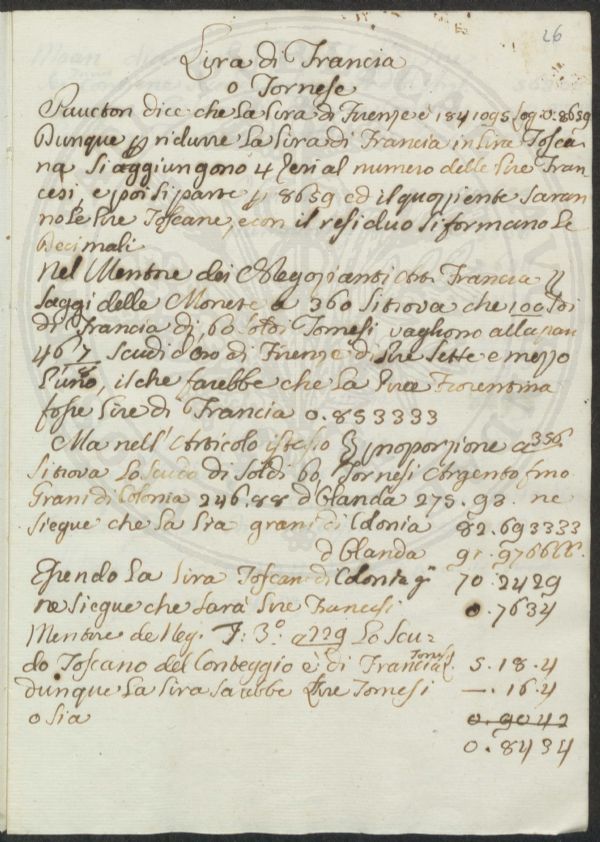 26
Lira di Francia
o Tornese
Paucton dice che La Lira di Firenze è 0.8659
Dunque p ridurre La Lira di Francia in Lire Tosca-
na Si aggiungono 4 Zeri al numero delle Lire Fran
cesi, e poi Si parte p 8659 ed il quoziente Saran
no Le Lire Toscane, e con il residuo Si formano Le
Decimali
Nel Mentore dei Negozianti Art. Francia
Saggi delle Monete a 360 Si trova che 100 
di Francia di 60 Soldi Tornesi vagliono alla pari
46 7/8 Scudi d'Oro di Firenze di Lire Sette e mezzo
L'uno, il che farebbe che La Lira Fiorentina
fosse Lire di Francia 0.853333
Ma nell'Articolo istesso proporzione a 356
Si trova Lo Scudo di Soldi 60 Tornesi Argento fino
Grani di Colonia 246.88 d'Olanda 275.93. ne
Siegue che La Lira grani di Colonia 82.293333
d'Olanda 91.976666.
Essendo La Lira Toscana di Colonia g.i 70.2429
ne Siegue che Sarà Lire Francesi 0.7634
Mentore de Neg. T: 3.º a 229 Lo Scu-
do Toscano del Conteggio è di Francia L. 5.18.4
dunque La Lira Sarebbe Lire Tornesi —.16.4
o Sia 0.9042
0.8434